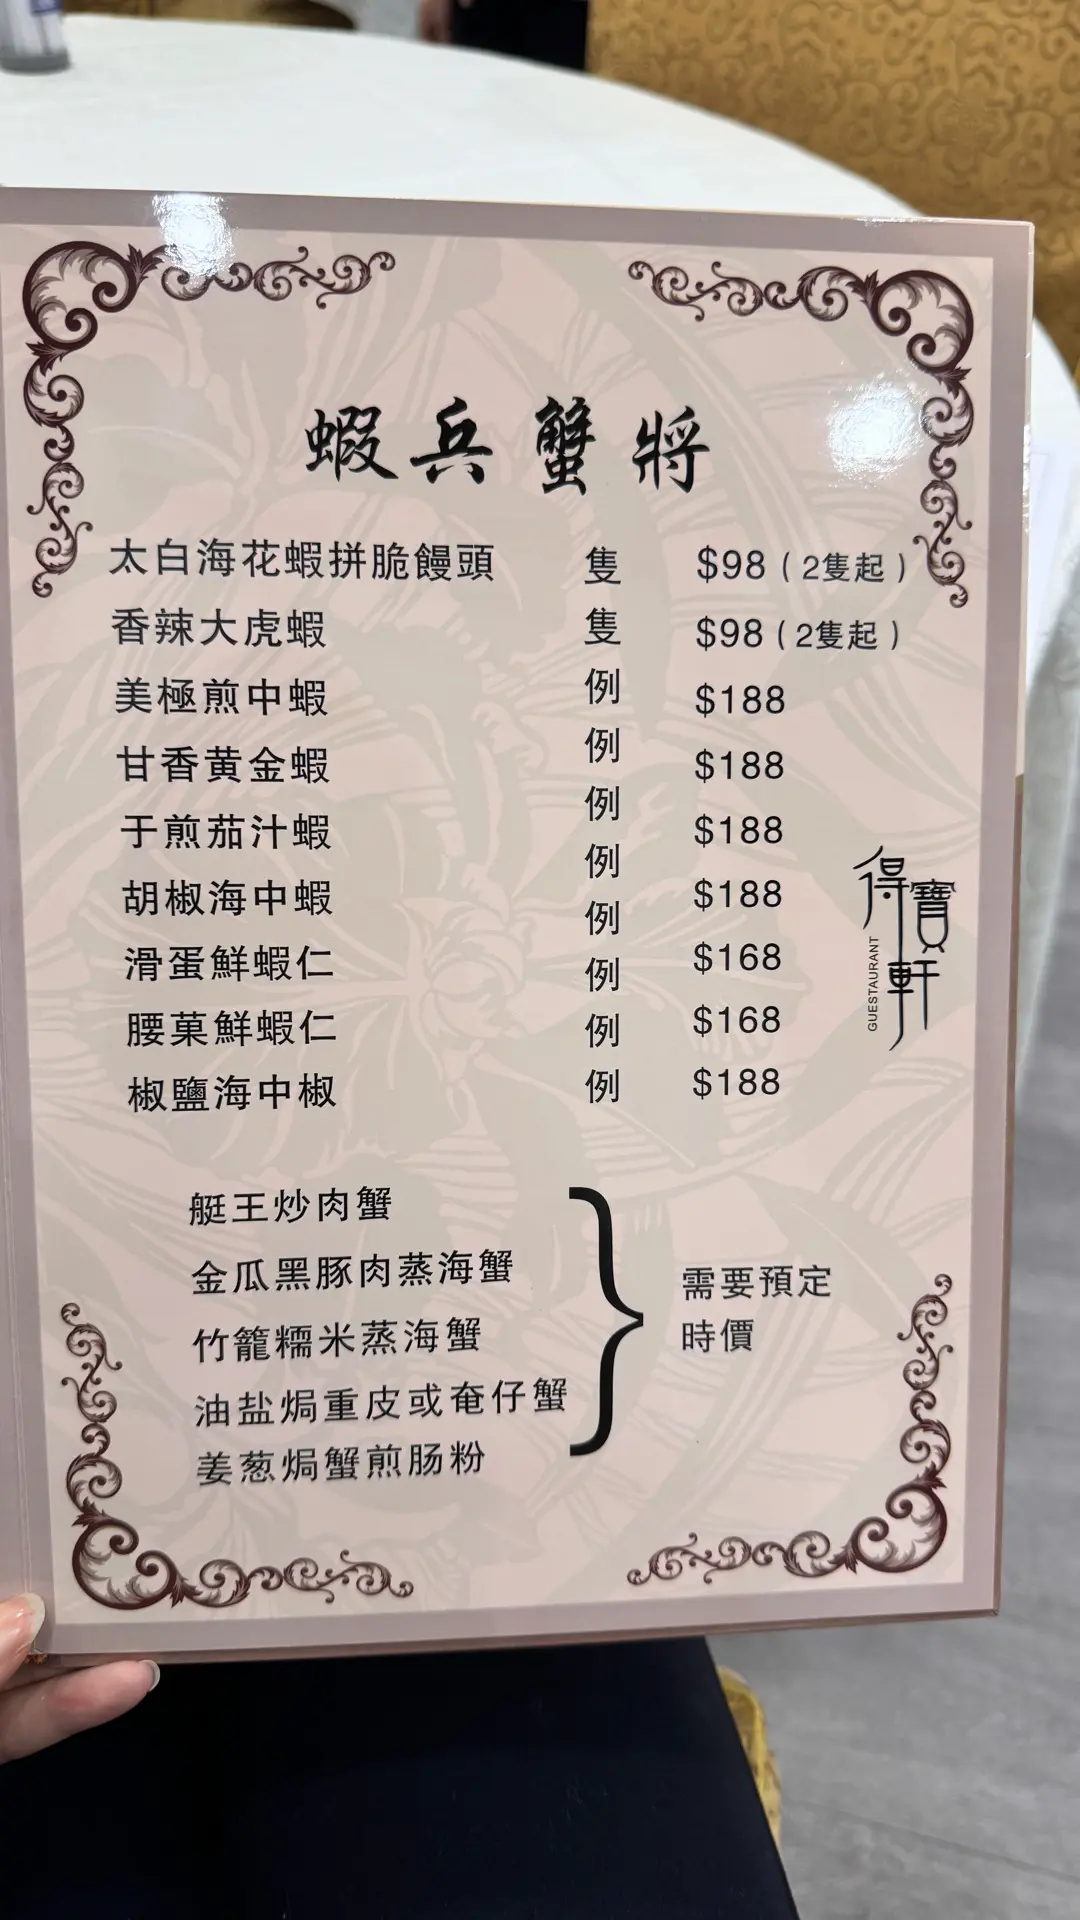 蝦兵蟹將
太白海花蝦拼脆饅頭 隻 $98（2隻起）
香辣大虎蝦 隻 $98（2隻起）
美極煎中蝦 例 $188
甘香黄金蝦 例 $188
于煎茄汁蝦 例 $188
胡椒海中蝦 例 $188
滑蛋鮮蝦仁 例 $168
腰菓鮮蝦仁 例 $168
椒鹽海中椒 例 $188
例
艇王炒肉蟹
金瓜黑豚肉蒸海蟹
竹籠糯米蒸海蟹
油盐焗重皮或奄仔蟹
姜葱焗蟹煎肠粉
需要預定
時價
得寶軒
GUESTAURANT